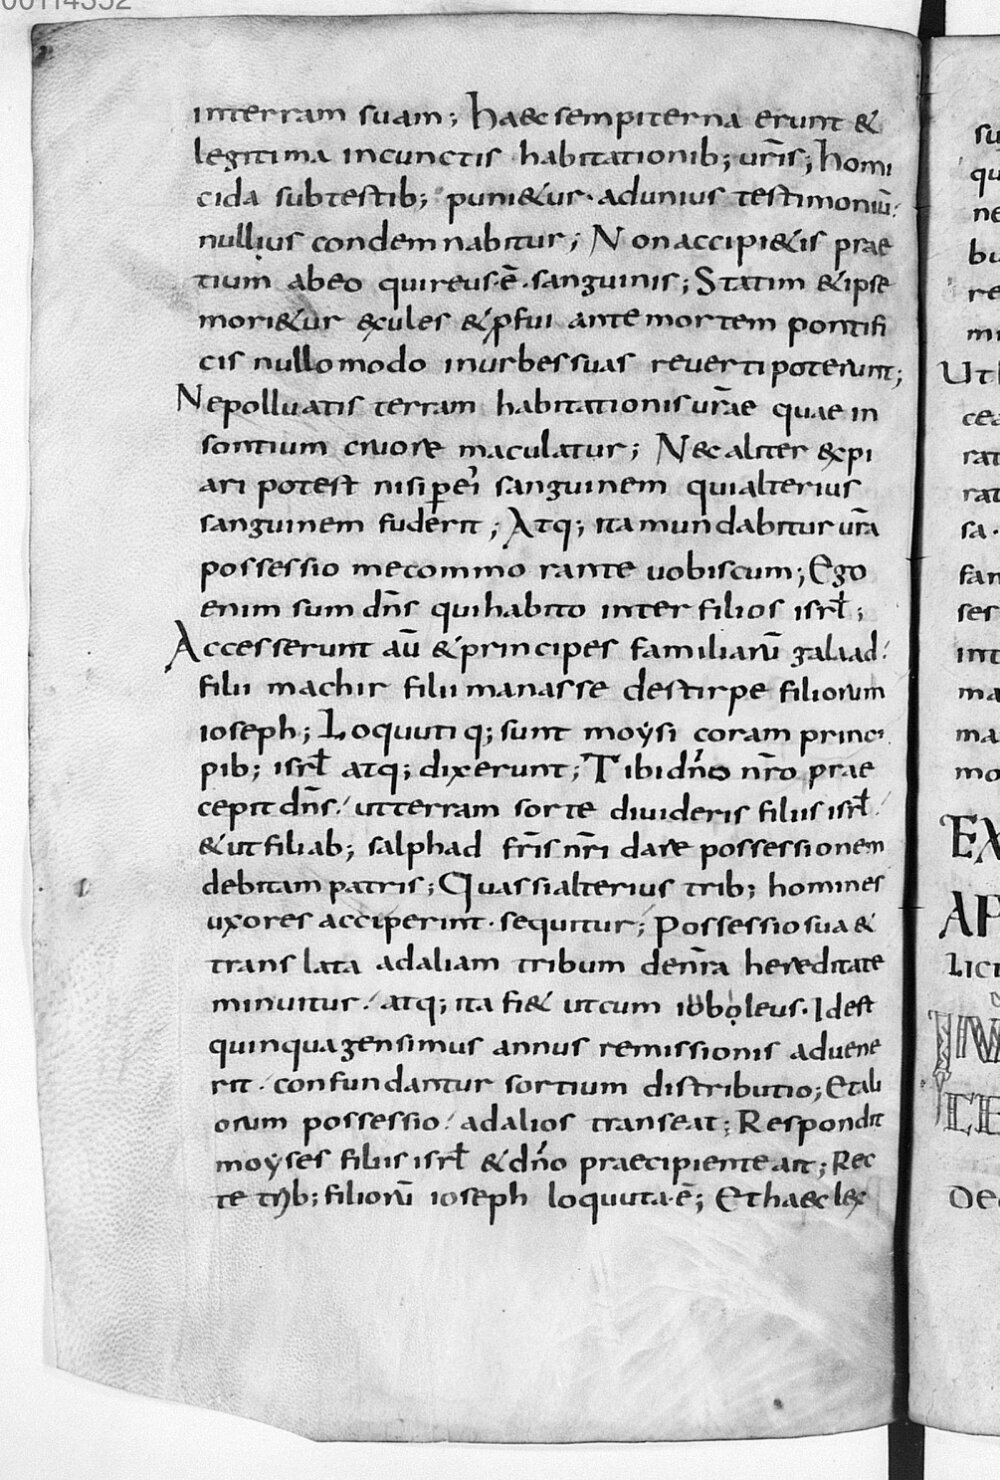 00114352
interram suam; haec sempiterna erunt &
legitima incunctis habitationib; ur̄is; homi
cida subtestib; puni&ur· adunius testimoniū
nullius condemnabitur; Non accipi&is prae
tium abeo quireus·ē·sanguinis; Statim &ipse
mori&ur excules &pfui ante mortem pontifi
cis nullomodo inurbes suas reuerti poterunt;
Nepolluatis terram habitationis ur̄ae quae in
sontium cruore maculatur; Nec aliter expi
ari potest nisi p̄ ei' sanguinem qui alterius
sanguinem fuderit; Atq; ita mundabitur ur̄a
possessio me commorante uobiscum; Ego
enim sum dn̄s qui habito inter filios isrł;
Accesserunt aū &principes familiarū galaad·
filii machir filii manasse destirpe filiorum
ioseph; Loquuti q; sunt moysi coram princi
pib; isrł atq; dixerunt; Tibi dn̄o nr̄o prae
cepit dn̄s· ut terram sorte diuideris filiis isrł·
&ut filiab; salphad fr̄is nr̄i dare possessionem
debitam patris; Quas si alterius trib; homines
uxores acciperint· sequitur; Possessio sua &
translata adaliam tribum den̄ra hereditate
minuitur· atq; ita fi& ut cum iobọleus· Idest
quinquagensimus annus remissionis aduene
rit· confundantur sortium distributio; Et ali
orum possessio· adalios transeat; Respondit
moyses filiis isrł &dn̄o praecipiente ait; Rec
te trib; filiorū ioseph loquuta·ē; Et haec lex
su
qu
ne
bu
re
mi
Uth
cea
rat
rat
sa·
fam
ses
int
ma
ma
mo
EX
AP
Lici
De